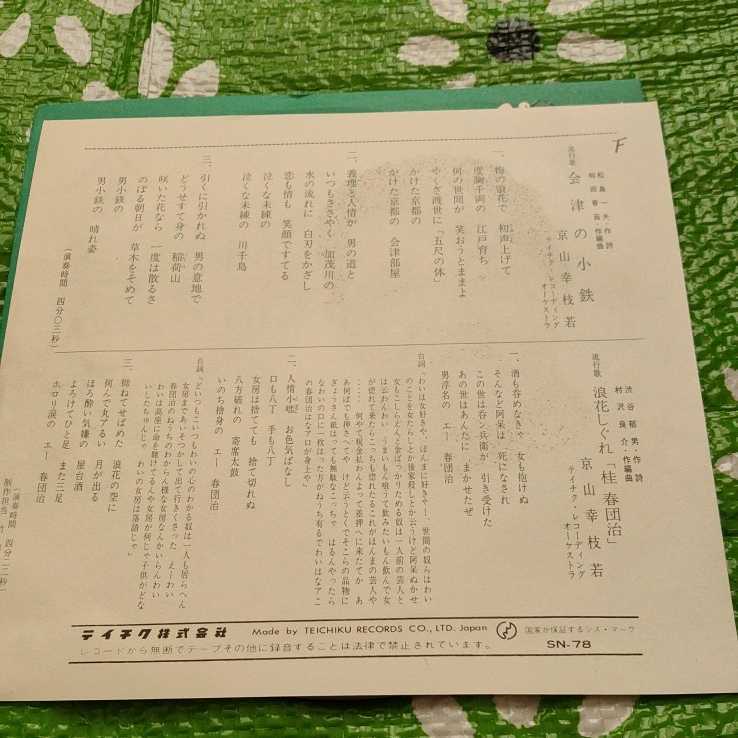 F
流行歌
会津の小鉄
松島一夫・作詩
村沢良介・作編曲
京山幸枝若
テイチク・レコーディング
オーケストラ
一、梅の浪花で 初声上げて
度胸千両の 江戸育ち
何の世間が 笑おうとままよ
やくざ渡世に「五尺の体」
かけた京都の
かけた京都の 会津部屋
二、義理と人情が 男の道と
いつもささやく 加茂川の
水の流れに 白刃をかざし
恋も情も 笑顔ですてる
泣くな未練の
泣くな未練の 川千鳥
三、引くに引かれぬ 男の意地で
どうせすて身の 稲荷山
咲いた花なら 一度は散るさ
のぼる朝日が 草木をそめて
男小鉄の
男小鉄の 晴れ姿
(演奏時間 四分〇三秒)
流行歌
浪花しぐれ「桂 春団治」
渋谷郁男・作詩
村沢良介・作編曲
京山幸枝若
テイチク・レコーディング
オーケストラ
一、酒も呑めなきゃ 女も抱けぬ
そんなど阿呆は 死になされ
この世は呑ン兵衛が 引き受けた
あの世はあんたに まかせたぜ
男浮名の エー 春団治
台詞「わいは女好きや、ほんまに好きやー、世間の奴らはわい
のことを女たらしとか後家殺しとか云うけど阿呆ぬかせ
女もこしらえんと金ばっかりためる奴は一人前の芸人と
は云わんわい うまいもん喰うて飲みたいもん飲んで女
が惚れて来たらこっちも惚れたるこれがほんまの芸人や
……何やて現金払わんよって差押へに来たてか あ
あ何ぼでも押さえてや けど云うとくでそこらの品物に
ぎょうさん紙はっても無駄なこっちゃ はるんやったら
なわいの口に一枚はった方がねうち有るでわいはなアこ
の春団治はなアロが身上や」
二、人情小咄 お色気ばなし
口も八丁 手も八丁
女房は捨てても 捨て切れぬ
八方破れの 寄席太鼓
いのち捨身の エー 春団治
台詞「どいつもこいつもわいの心のわかる奴は一人も居らへん
女房まであいそつかして出て行きくさった えーわい
春団治のねうちのわからん様な女房なんかいらんわい
わいは高座に命を賭けてるんや女房が何じゃ子供がどな
いしたちゅうんじゃ わいの女房は落語じゃ」
三、拗ねてせばめた 浪花の空に
何んで丸アるい 月が出る
ほろ酔い気嫌の 屋台酒
よろけてひと足 また二足
ホロリ涙の エー 春団治
(演奏時間 四分二三秒)
制作担当
テイチク株式会社
Made by TEICHIKU RECORDS CO., LTD. Japan
国家が保証するジス・マーク
レコードから無断でテープその他に録音することは法律で禁止されています。
SN-78